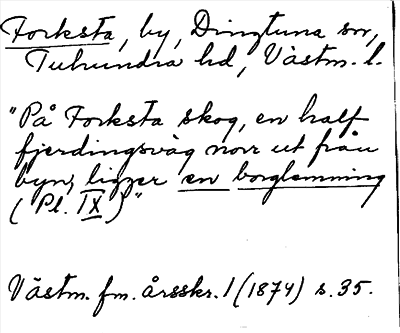 Forksta, by, Dingtuna sn,
Tuhundra hd, Västm. l.
"På Forksta skog, en half
fjerdingsväg norr ut från
byn, ligger en borglemning
(Pl. IX)"
Västm. fm. årsskr. 1 (1874) s. 35.